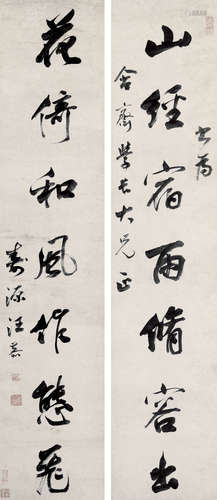 山經宿雨脩容出
花倚和風作態飛
書為
舍齋學長大兄正
壽源汪嘉